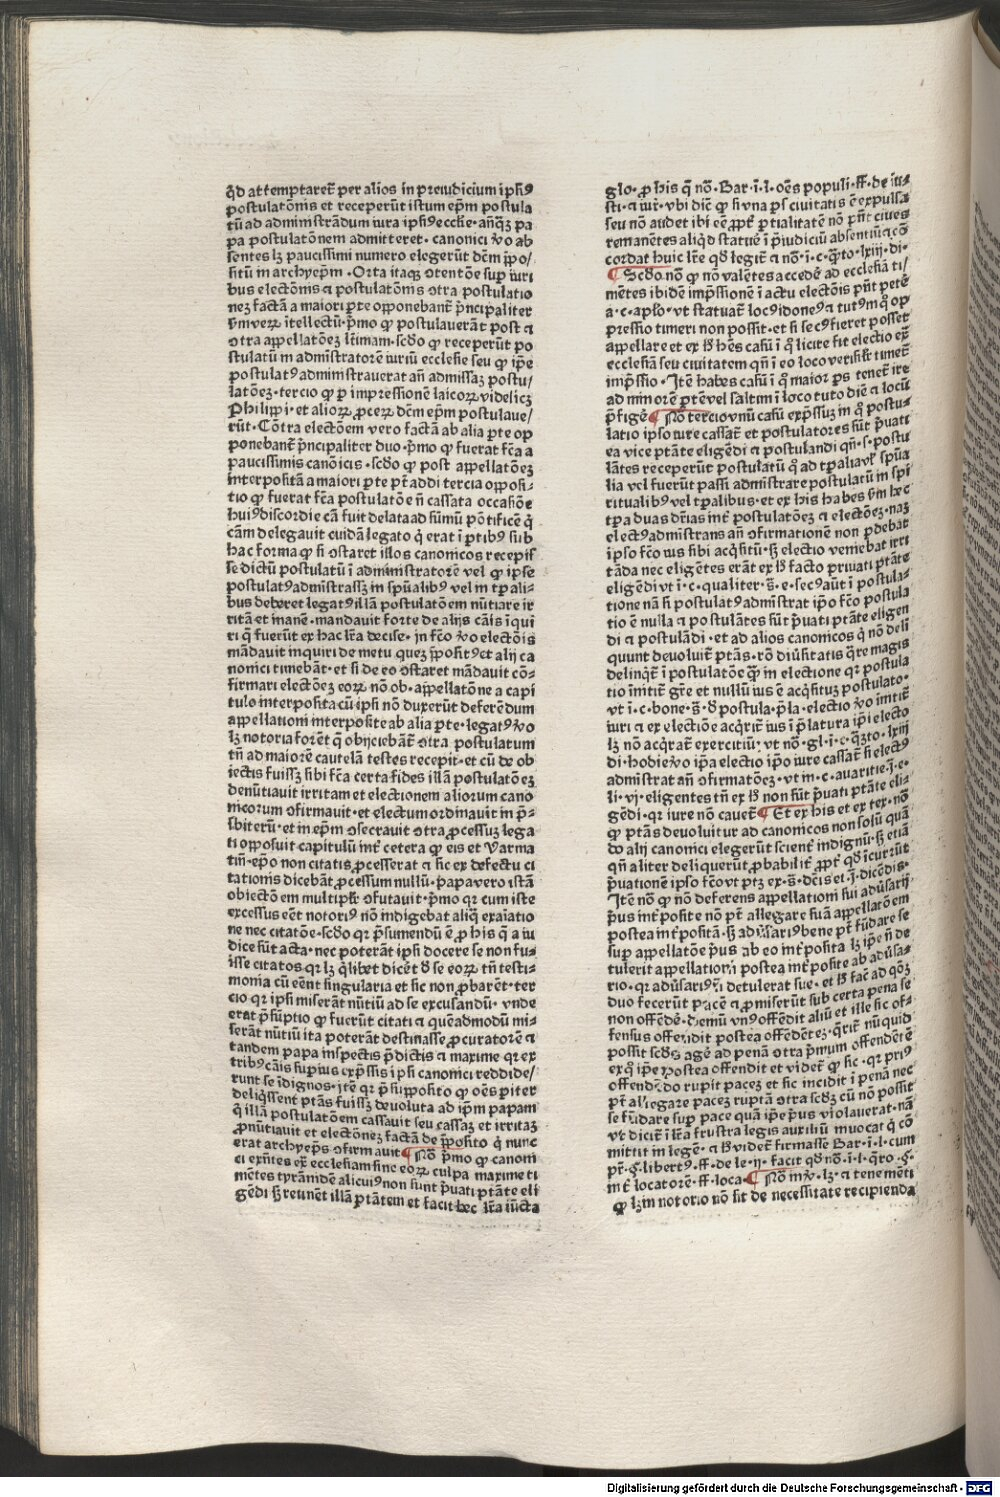 qd attemptaret̄ per alios in preiudicium ipsiꝰ
postulatōnis et receperūt istum ep̄m postula
tū ad administrādum iura ipsiꝰ eccl̄ie. anꝙ̄ȝ pa
pa postulatōnem admitteret. canonici v̄o ab
sentes lȝ paucissimi numero elegerūt dc̄m p̄po/
situ̅ in archyep̄m. Orta itaqȝ ɔtentōe suꝑ iuri
bus electōnis ⁊ postulatōnis ɔtra postulatio
neȝ factā a maiori ꝑte opponebant̄ p̄ncipaliter
postulauerāt post ⁊
ɔtra appellatōeȝ lt̄imam. scd̄o ꝙ receperūt po
stulatū in administratorē iuriū ecclesie seu ꝙ ip̄e
postulatꝰ administrauerat an̄ admissaȝ postu/
latōeȝ. tercio ꝙ ꝑ impressionē laicoꝝ videlicȝ
Philippi. et alioꝝ ꝓceꝝ dc̄m ep̄m postulaue/
rūt. Cōtra electōem vero factā ab alia ꝑte op
ponebant̄ p̄ncipaliter duo. p̄mo ꝙ fuerat fc̄a a
paucissimis canōicis. scd̄o ꝙ post appellatōeȝ
interpositā a maiori ꝑte pt̄ addi tercia opposi-
tio ꝙ fuerat fc̄a postulatōe n̄ cassata occasiōe
huiꝰ discordie cā fuit delata ad sūmū pōtificē q̄
cām delegauit cuidā legato q̄ erat ī ꝑtibꝰ sub
hac forma ꝙ si ɔstaret illos canonicos recepis
se dictū postulatū ī administratorē vel ꝙ ipse
postulatꝰ admīstrassȝ in spūalibꝰ vel in tꝑali-
bus deberet legatꝰ illā postulatōem nūtiare ir
ritā et inanē. mandauit forte de alijs cāis ī qui
ri q̄ fuerūt ex hac lr̄a decise. in fc̄o v̄o electōis
mādauit inquiri de metu queȝ p̄positꝰ et alij ca
nonici timebāt. et si de eo ɔstaret mādauit cō-
firmari electōeȝ eoꝝ nō ob. appellatōne a capi
tulo interposita cū ipsi nō duxerūt deferēdum
appellationi interposite ab alia ꝑte. legatꝰ v̄o
lȝ notoria forēt q̄ obijciebāt̄ ɔtra postulatum
tn̄ ad maiorē cautelā testes recepit. et cū de ob
iectis fuissȝ sibi fc̄a certa fides illā postulatōeȝ
denūtiauit irritam et electionem aliorum cano
nicorum ɔfirmauit. et electum ordinauit in p̄-
sbiterū. et in ep̄m ɔsecrauit ɔtra ꝓcessuȝ lega
ti opposuit capitulū int̄ cetera ꝙ eis et Varma
tin̄. ep̄o non citatis ꝓcesserat ⁊ sic ex defectu ci
tationis dicebāt ꝓcessum nullū. papa vero istā
obiectōem multiplr̄ ɔfutauit. p̄mo qr cum iste
excessus eēt notoriꝰ nō indigebat aliq̄ exaīatio
ne nec citatōe. scd̄o qr p̄sumendū ē ꝓ his q̄ a iu
dice sūt acta. nec poterāt ipsi docere se non fu-
isse citatos qr lȝ q̄libet dicēt d̄ se eoꝝ tn̄ testi-
monia cū eēnt singularia et sic non ꝓbarēt. ter
cio qr ipsi miserāt nūtiū ad se excusandū. vnde
erat p̄sūptio ꝙ fuerūt citati ⁊ quēadmodū mi-
serāt nūtiū ita poterāt destinasse ꝓcuratorē ⁊
tandem papa inspectis p̄dictis ⁊ maxime qr ex
tribꝰ cāis suꝑius exp̄ssis ipsi canonici reddide/
runt se īdignos. itē qr p̄supposito ꝙ oēs ꝑiter
deliq̄ssent ptās fuissȝ deuoluta ad ip̄m papam
q̄ illā postulatōem cassauit seu cassaȝ et irritaȝ
ꝓnūtiauit et electōneȝ factā de p̄posito q̄ nunc
erat archyep̄s ɔfirmauit ¶ Nō p̄mo ꝙ canoni
ci exn̄tes ex̄ ecclesiam sine eoꝝ culpa maxime ti
mētes tyrāidē alicuiꝰ non sunt p̄uati ptāte eli
gēdi sȝ retinēt illā ptātem et facit hec lr̄a iūcta
glo. ꝓ his q̄ nō. Bar. ī. l. oēs populi. ff. de iu-
sti. ⁊ iur̄. vbi diē ꝙ si vna ps̄ ciuitatis ē expulsa
seu nō audet ibi eē ꝓpt̄ ꝑtialitatē nō pn̄t ciues
remanētes aliqd statuē ī p̄iudiciū absentiū ⁊ cō
cordat huic lr̄e qd̄ legit̄ ⁊ nō. ī. c. q̄to. lxiij. di.
¶ Scd̄o nō ꝙ nō valētes accedē ad ecclesiā ti/
mētes ibidē imp̄ssionē ī actu electōis pn̄t petē
a. c. aplȳ. vt statuat̄ locꝰ idoneꝰ ⁊ tutꝰ in q̄ op
pressio timeri non possit. et si secꝰ fieret posset
appellare et ex h̄ hēs casū ī q̄ licite fit electio ex̄
ecclesiā seu ciuitatem qn̄ ī eo loco verisilr̄ timet̄
imp̄ssio. Itē habes casū ī q̄ maior ps̄ tenet̄ ire
ad minorē ꝑtē vel saltim ī loco tuto diē ⁊ locū
p̄figē ¶ Nō tercio vnū casū exp̄ssuȝ in q̄ postu
latio ipso iure cassat̄ et postulatores sūt p̄uati
ea vice ptāte eligēdi ⁊ postulandi qn̄. s. postu
lātes receperūt postulatū q̄ ad tꝑalia vl̄ spūa
lia vel fuerūt passi admīstrare postulatū in spi
ritualibꝰ vel tꝑalibus. et ex his habes
tꝑa duas dr̄ias int̄ postulatōeȝ ⁊ electōeȝ. naȝ
electꝰ admīstrans an̄ ɔfirmationē non ꝑdebat
ipso fc̄o ius sibi acq̄sitū. sȝ electio veniebat irri
tāda nec eligētes erāt ex h̄ facto priuati ptāte
eligēdi vt ī. c. qualiter. s̄. e. secꝰ aūt ī postula-
tione nā si postulatꝰ admīstrat ip̄o fc̄o postula
tio ē nulla ⁊ postulātes sūt p̄uati ptāte eligen
di ⁊ postulādi. et ad alios canonicos q̄ nō deli
quunt deuoluit̄ ptās. rō diūsitatis q̄re magis
delinq̄t̄ ī postulatōe ꝙ̄ in electione qr postula
tio īnitit̄ gr̄e et nullū ius ē acq̄situȝ postulato.
vt ī. c. bone. s̄. d̄ postula. p̄la. electio v̄o īnitit̄
iuri ⁊ ex electiōe acq̄rit̄ ius ī p̄latura ip̄i electo
lȝ nō acq̄rat̄ exercitiū. vt nō. gl. ī. c. q̄ȝto. lxiij
di. hodie v̄o ip̄a electio ip̄o iure cassat̄ si electꝰ
admīstrat an̄ ɔfirmatōeȝ. vt in. c. auaritie. ī. e.
li. vj. eligentes tn̄ ex h̄ non sūt p̄uati ptāte eli-
gēdi. qr iure nō cauet̄ ¶ Et ex his et ex tex. nō
ꝙ ptās deuoluitur ad canonicos non solū quā
do alij canonici elegerūt scient̄ indignū. sȝ etiā
qn̄ aliter deliquerūt ꝓbabilit̄ ꝓpt̄ qd̄ īcurrūt
p̄uationē ipso fc̄o vt ptȝ ex. s̄. dc̄is et. ī. dicēdis.
Itē nō ꝙ nō deferens appellationi sui adūsarij
p̄us int̄posite nō pt̄ allegare suā appellatōem
postea int̄positā. sȝ adūsariꝰ bene pt̄ fūdare se
suꝑ appellatōe p̄us ab eo int̄posita lȝ ip̄e n̄ de
tulerit appellationi postea int̄posite ab adūsa-
rio. qr adūsariꝰ n̄ detulerat sue. et h̄ facē ad q̄ōȝ
duo fecerūt pacē ⁊ ꝓmiserūt sub certa pena se
non offendē. demū vnꝰ offēdit aliū et ille sic of-
fensus offendit postea offēdētēȝ. q̄rit̄ nūquid
possit scd̄s agē ad penā ɔtra p̄mum offendētē
ex q̄ ip̄e postea offendit et videt̄ ꝙ sic. qr priꝰ
offendēdo rupit paceȝ et sic incidit ī penā nec
pt̄ allegare paceȝ ruptā ɔtra scd̄ȝ cū nō possit
se fūdare suꝑ pace quā ip̄e p̄us violauerat. nā
vt dicit̄ ī lr̄a frustra legis auxiliū inuocat q̄ cō
mittit in legē. ⁊ h̄ videt̄ firmasse Bar. ī. l. cum
pr̄. §. libertꝰ. ff. de le. ij. facit qd̄ nō. ī. l. q̄ro. §.
int̄ locatorē. ff. loca. ¶ Nō inv̄. lȝ. ⁊ tene mēti
ꝙ lȝ in notorio nō sit de necessitate recipienda
Digitalisierung gefördert durch die Deutsche Forschungsgemeinschaft - DFG